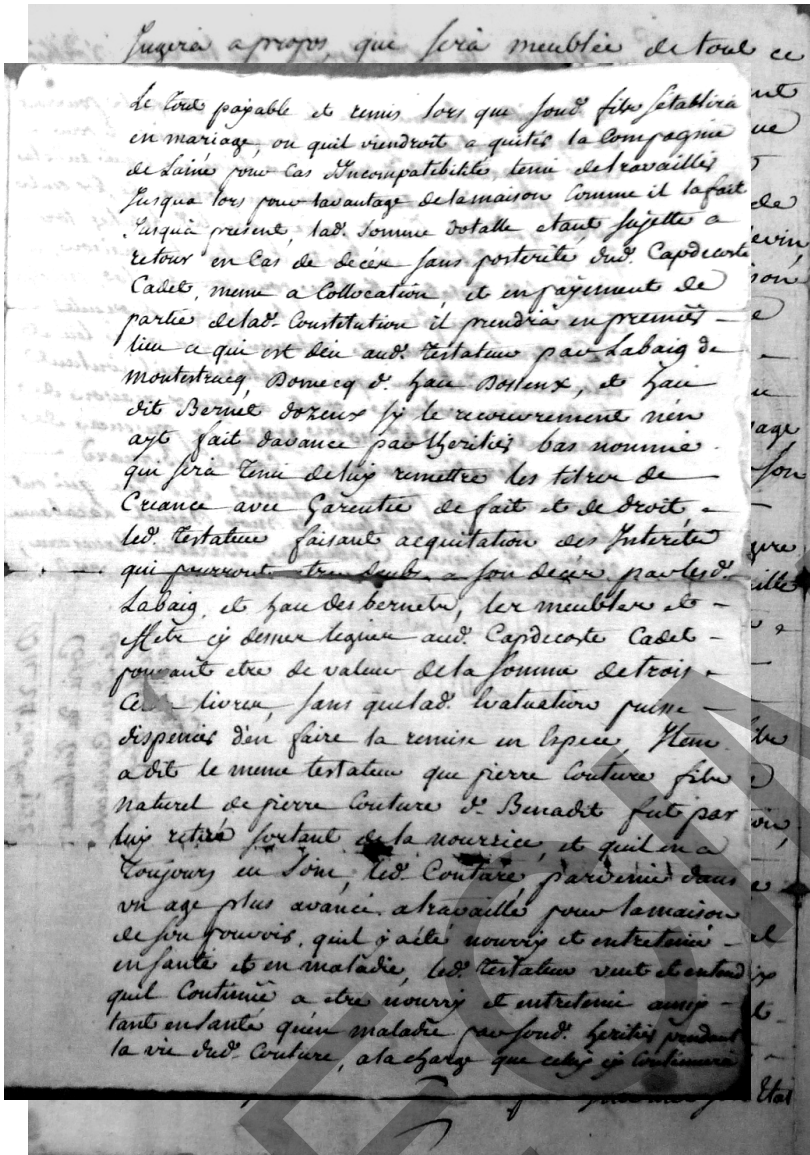 Jugera apropos, que sera meublée de tout ce
Le Tout payable et remis lors que sond. fils s'etablira
en mariage, ou quil viendroit a quiter la Compagnie
de Lainé pour Cas d'Incompatibilité, tenu de travailler
Jusqua lors pour lavantage de la maison Comme il la fait
Jusqua present, lad. Somme dotalle etant sujette a
retour en Cas de décéz sans posterité dud. Capdecoste
Cadet, meme a Collocation, et en payement de
partie de lad. Constitution il prendra en premier
lieu ce qui est deu aud. Testateur par Labaig de
montestrucq, Domecq d. hau Dosseux, et hau
dit Bernet dozeux sy le recouvrement n'en
ayt fait davance par lheritier bas nommé
qui sera Tenu de luy remettre les titres de
Creance avec Garentie de fait et de droit,
led. Testateur faisant acquitation des Interets
qui pourront etre deubs a son décéz par lesd.
Labaig, et hau des bernets, les meubles et
effets cy dessus leguez aud. Capdecoste Cadet
pouvant etre de valeur de la Somme de trois
Cens livres, sans que lad. Evaluation puisse
dispenser d'en faire la remise en Espece, Item
a dit le meme testateur que pierre Couture fils
naturel de pierre Couture d. Benadit fut par
luy retiré sortant de la nourrice, et quil en a
Toujours eu Soin, led. Couture, parvenu dans
un age plus avancé, a travaillé pour la maison
de son pouvoir, quil y a été nourry et entretenu
en santé et en maladie, led. Testateur veut et entend
quil Continue a etre nourry et entretenu aussy
tant en santé qu'en maladie par sond. heritier pendant
la vie dud. Couture, a la charge que celuy cy Continuera